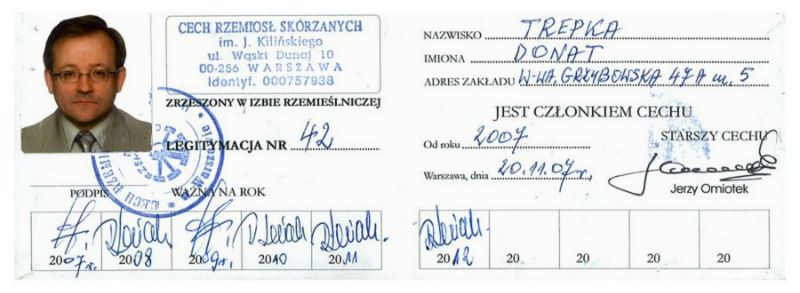 CECH RZEMIOSŁ SKÓRZANYCH
im. J. Kilińskiego
ul. Wąski Dunaj 10
00-256 WARSZAWA
Identyf. 000757938
ZRZESZONY W IZBIE RZEMIEŚLNICZEJ
LEGITYMACJA NR 42
PODPIS WAŻNA NA ROK
2007r. 2008 2009r. 2010 2011
NAZWISKO TREPKA
IMIONA DONAT
ADRES ZAKŁADU W-WA, GRZYBOWSKA 47A m. 5
JEST CZŁONKIEM CECHU
Od roku 2007 STARSZY CECHU
Warszawa, dnia 20.11.07r.
Jerzy Omiotek
2012 20 20 20 20